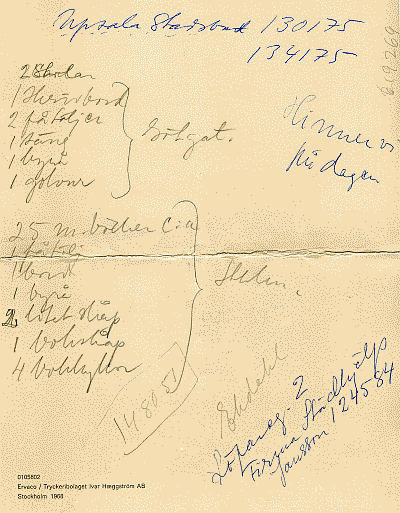 Upsala Stadsbud 130175
134175
2 Stolar
1 Skrivbord
2 fåtöljer
1 säng
1 byrå
1 golvur
Götgat.
Hinner vi
på dagen
25 m. böcker c:a
1 bord
1 byrå
2 litet skåp
1 bokskåp
4 bokhyllor
148051
Ekdahl
2
Firma Städhjälp
Jansson 124584
6.9.269
0105802
Ervaco / Tryckeribolaget Ivar Hæggström AB
Stockholm 1968